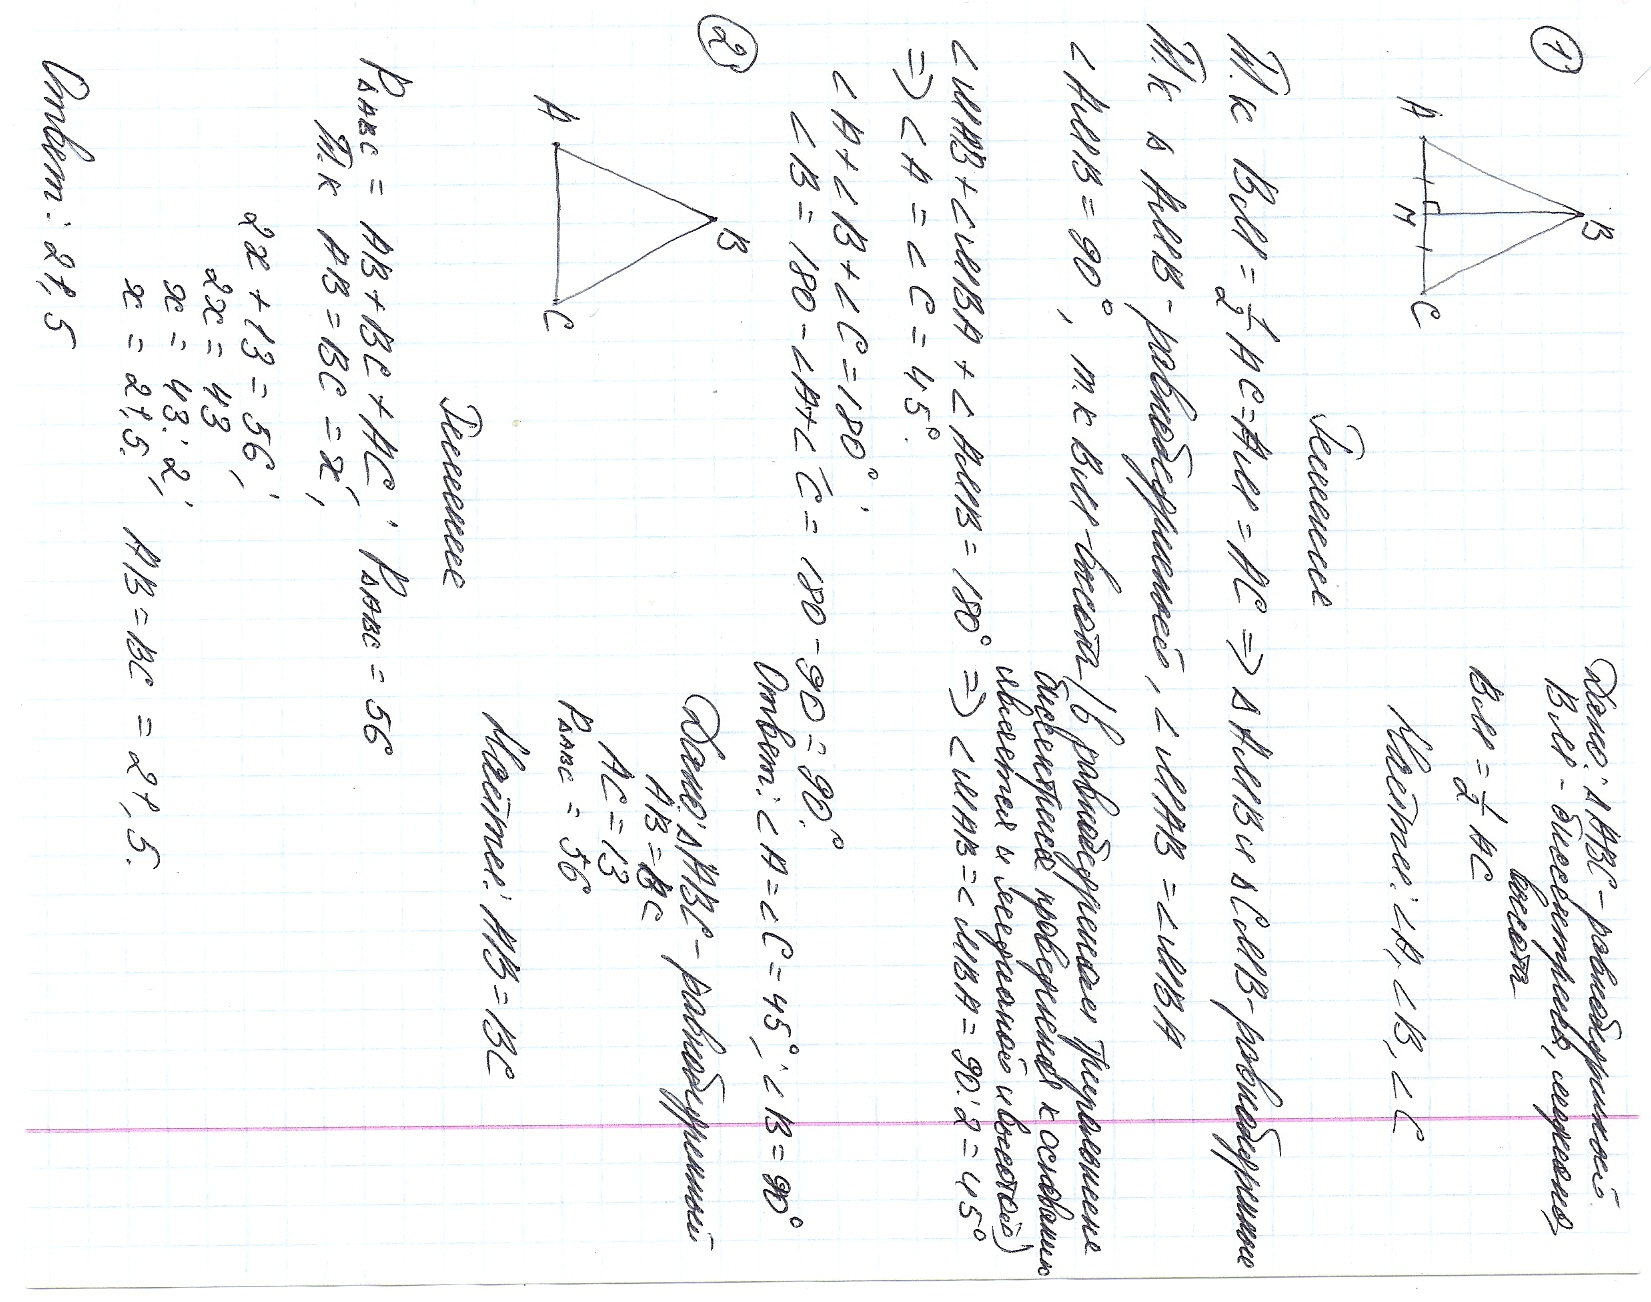 ①
B
A
M
C
Дано: ΔABC - равнобедренный
BM - биссектриса, медиана,
высота
BM = 1/2 AC
Найти: ∠A, ∠B, ∠C
Решение
Т.к BM = 1/2 AC = AM = MC => Δ AMB и Δ CMB - равнобедренные
Т.к Δ AMB - равнобедренный, ∠MAB = ∠MBA
∠AMB = 90°, т.к BM - высота (в равнобедренном треугольнике
биссектриса проведенная к основанию
является и медианой и высотой)
∠MAB + ∠MBA + ∠AMB = 180° => ∠MAB = ∠MBA = 90:2 = 45°
=> ∠A = ∠C = 45°.
∠A + ∠B + ∠C = 180°;
∠B = 180 - ∠A + ∠C = 180 - 90 = 90°.
Ответ: ∠A = ∠C = 45°; ∠B = 90°
②
B
A
C
Дано: ΔABC - равнобедренный
AB = BC
AC = 13
PΔABC = 56
Найти: AB = BC
Решение
PΔABC = AB + BC + AC; PΔABC = 56
Т.к AB = BC = x;
2x + 13 = 56;
2x = 43
x = 43:2;
x = 21,5. AB = BC = 21,5.
Ответ: 21,5